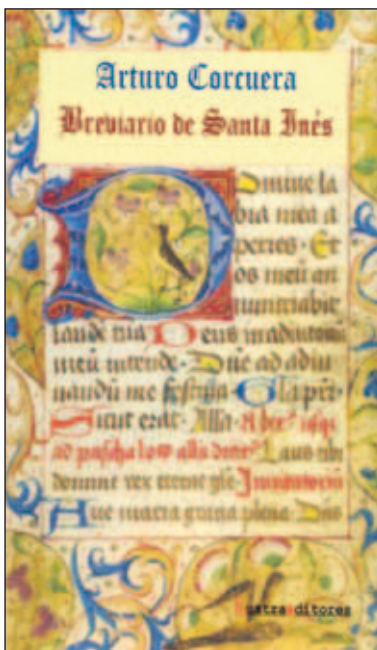 Arturo Corcuera
Breviario de Santa Inés
Domine la
bia mea a
peries. Et
os meū an
nuntiabit
laudē tuā Deus in adiutoriū
meū intende. Dn̄e ad adiu
uandū me festina. Gl'a pr̄i.
Sicut erat. All'a.
ad pascha loco all'a Laus tibi
domine rex eterne gl'e.
Aue maria gratia plena Dn̄s
lustraeditores